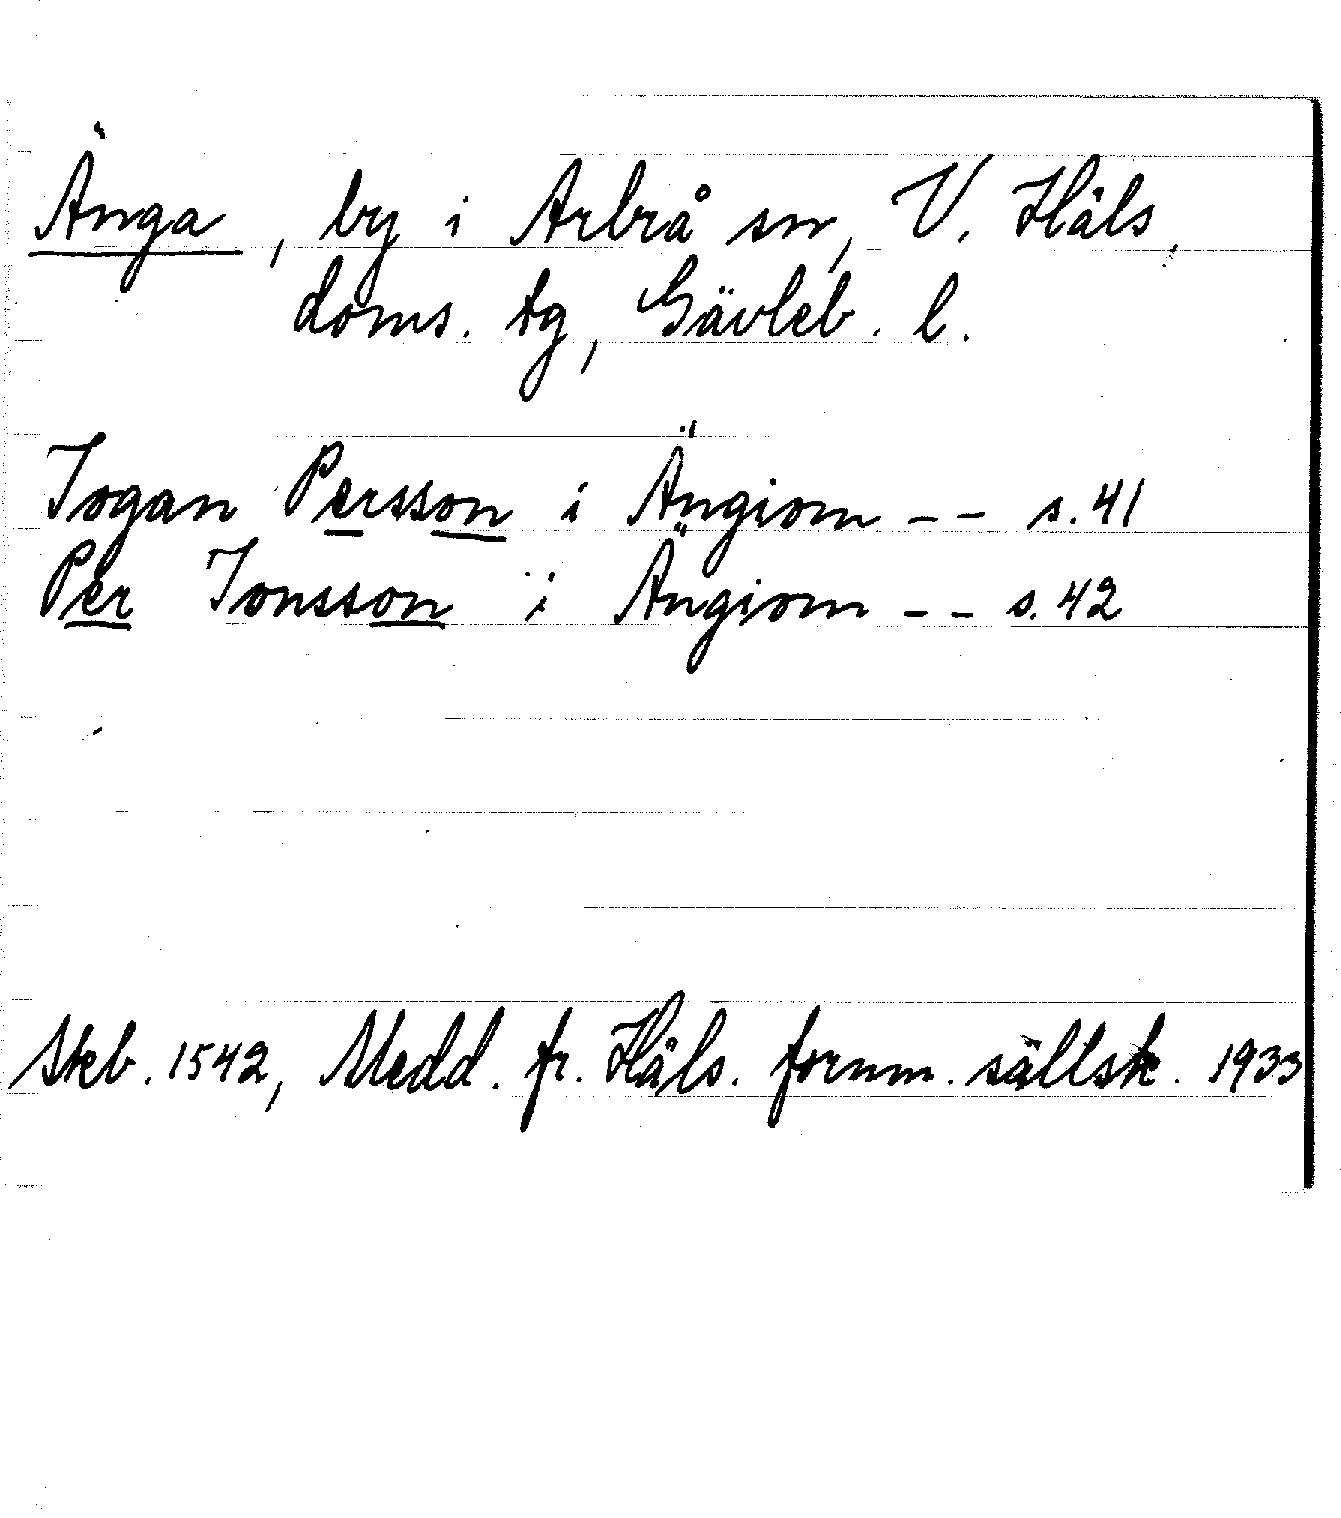 Änga, by i Arbrå sn, V. Häls.
doms. tg, Gävleb. l.
Jogan Persson i Ängiom -- s. 41
Per Jonsson i Ängiom -- s. 42
Skb. 1542, Medd. fr. Häls. fornm. sällsk. 1933